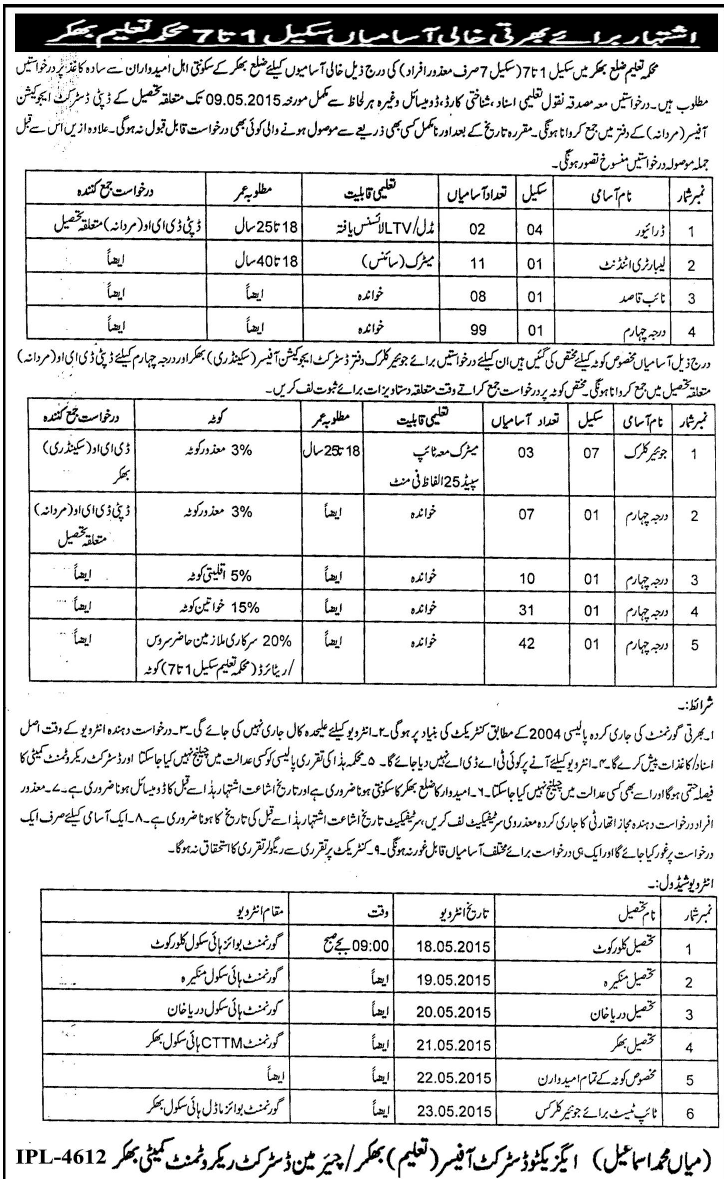 اشتہار برائے بھرتی خالی آسامیاں سکیل 1 تا 7 محکمہ تعلیم بھکر
محکمہ تعلیم ضلع بھکر میں سکیل 1 تا 7 (سکیل 7 صرف معذور افراد) کی درج ذیل خالی آسامیوں کیلئے ضلع بھکر کے سکونتی اہل امیدواران سے سادہ کاغذ پر درخواستیں
مطلوب ہیں۔ درخواستیں معہ مصدقہ نقول تعلیمی اسناد، شناختی کارڈ، ڈومیسائل وغیرہ ہر لحاظ سے مکمل مورخہ 09.05.2015 تک متعلقہ تحصیل کے ڈپٹی ڈسٹرکٹ ایجوکیشن
آفیسر (مردانہ) کے دفتر میں جمع کروانا ہونگی۔ مقررہ تاریخ کے بعد اور نامکمل کسی بھی ذریعے سے موصول ہونے والی کوئی بھی درخواست قابل قبول نہ ہوگی۔ علاوہ ازیں اس سے قبل
جملہ موصولہ درخواستیں منسوخ تصور ہونگی۔
نمبر شمار نام آسامی سکیل تعداد آسامیاں تعلیمی قابلیت مطلوبہ عمر درخواست جمع کنندہ
1 ڈرائیور 04 02 مڈل/LTV لائسنس یافتہ 18 تا 25 سال ڈپٹی ڈی ای او (مردانہ) متعلقہ تحصیل
2 لیبارٹری اٹنڈنٹ 01 11 میٹرک (سائنس) 18 تا 40 سال ایضاً
3 نائب قاصد 01 08 خواندہ ایضاً ایضاً
4 درجہ چہارم 01 99 خواندہ ایضاً ایضاً
درج ذیل آسامیاں مخصوص کوٹہ کیلئے مختص کی گئیں ہیں ان کیلئے درخواستیں برائے جونیئر کلرک دفتر ڈسٹرکٹ ایجوکیشن آفیسر (سکینڈری) بھکر اور درجہ چہارم کیلئے ڈپٹی ڈی ای او (مردانہ)
متعلقہ تحصیل میں جمع کروانا ہونگی۔ مختص کوٹہ پر درخواست جمع کراتے وقت متعلقہ دستاویزات برائے ثبوت لف کریں۔
نمبر شمار نام آسامی سکیل تعداد آسامیاں تعلیمی قابلیت مطلوبہ عمر کوٹہ درخواست جمع کنندہ
1 جونیئر کلرک 07 03 میٹرک معہ ٹائپ 18 تا 25 سال 3% معذور کوٹہ ڈی ای او (سکینڈری)
سپیڈ 25 الفاظ فی منٹ بھکر
2 درجہ چہارم 01 07 خواندہ ایضاً 3% معذور کوٹہ ڈپٹی ڈی ای او (مردانہ)
متعلقہ تحصیل
3 درجہ چہارم 01 10 خواندہ ایضاً 5% اقلیتی کوٹہ ایضاً
4 درجہ چہارم 01 31 خواندہ ایضاً 15% خواتین کوٹہ ایضاً
5 درجہ چہارم 01 42 خواندہ ایضاً 20% سرکاری ملازمین حاضر سروس ایضاً
/ریٹائرڈ (محکمہ تعلیم سکیل 1 تا 7) کوٹہ
شرائط:۔
۱۔ بھرتی گورنمنٹ کی جاری کردہ پالیسی 2004 کے مطابق کنٹریکٹ کی بنیاد پر ہوگی۔ ۲۔ انٹرویو کیلئے علیحدہ کال جاری نہیں کی جائے گی۔ ۳۔ درخواست دہندہ انٹرویو کے وقت اصل
اسناد/کاغذات پیش کرے گا۔ ۴۔ انٹرویو کیلئے آنے پر کوئی ٹی اے ڈی اے نہیں دیا جائے گا۔ ۵۔ محکمہ ہذا کی تقرری پالیسی کو کسی عدالت میں چیلنج نہیں کیا جاسکتا اور ڈسٹرکٹ ریکروٹمنٹ کمیٹی کا
فیصلہ حتمی ہوگا اور اسے بھی کسی عدالت میں چیلنج نہیں کیا جاسکتا۔ ۶۔ امیدوار کا ضلع بھکر کا سکونتی ہونا ضروری ہے اور تاریخ اشاعت اشتہار ہذا سے قبل کا ڈومیسائل ہونا ضروری ہے۔ ۷۔ معذور
افراد درخواست دہندہ مجاز اتھارٹی کا جاری کردہ معذوری سرٹیفکیٹ لف کریں، سرٹیفکیٹ تاریخ اشاعت اشتہار ہذا سے قبل کی تاریخ کا ہونا ضروری ہے۔ ۸۔ ایک آسامی کیلئے صرف ایک
درخواست پر غور کیا جائے گا اور ایک ہی درخواست برائے مختلف آسامیاں قابل غور نہ ہونگی۔ ۹۔ کنٹریکٹ پر تقرری سے ریگولر تقرری کا استحقاق نہ ہوگا۔
انٹرویو شیڈول:۔
نمبر شمار نام تحصیل تاریخ انٹرویو وقت مقام انٹرویو
1 تحصیل کلورکوٹ 18.05.2015 09:00 بجے صبح گورنمنٹ بوائز ہائی سکول کلورکوٹ
2 تحصیل منکیرہ 19.05.2015 ایضاً گورنمنٹ ہائی سکول منکیرہ
3 تحصیل دریا خان 20.05.2015 ایضاً گورنمنٹ ہائی سکول دریا خان
4 تحصیل بھکر 21.05.2015 ایضاً گورنمنٹ CTTM ہائی سکول بھکر
5 مخصوص کوٹہ کے تمام امیدوارن 22.05.2015 ایضاً ایضاً
6 ٹائپ ٹیسٹ برائے جونیئر کلرکس 23.05.2015 ایضاً گورنمنٹ بوائز ماڈل ہائی سکول بھکر
(میاں محمد اسماعیل) ایگزیکٹو ڈسٹرکٹ آفیسر (تعلیم) بھکر/چیئرمین ڈسٹرکٹ ریکروٹمنٹ کمیٹی بھکر IPL-4612